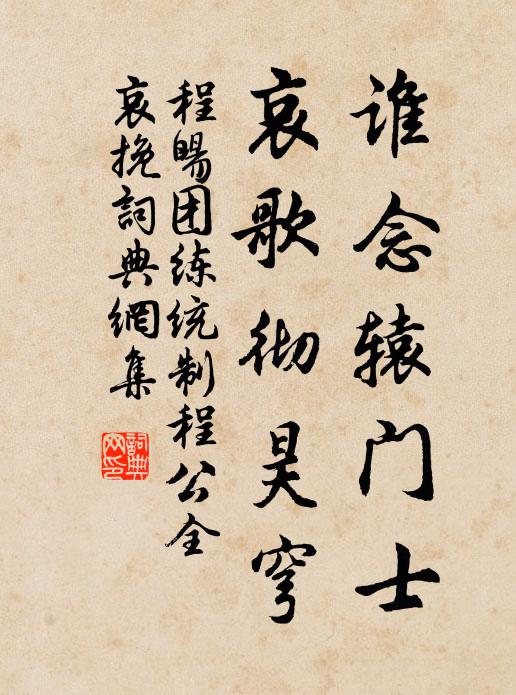 谁念辕门士
哀歌彻昊穹
程暘团练统制程公全
哀挽詞典網集
詞典网印